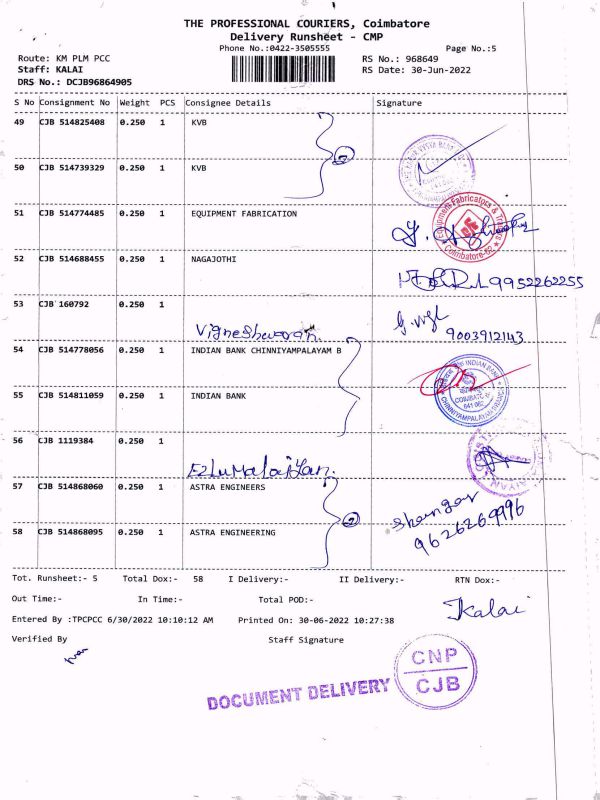 THE PROFESSIONAL COURIERS, Coimbatore
Delivery Runsheet - CMP
Phone No.:0422-3505555
Page No.:5
Route: KM PLM PCC
RS No.: 968649
Staff: KALAI
RS Date: 30-Jun-2022
DRS No.: DCJB96864905
S No Consignment No Weight PCS Consignee Details Signature
49 CJB 514825408 0.250 1 KVB
2
50 CJB 514739329 0.250 1 KVB
51 CJB 514774485 0.250 1 EQUIPMENT FABRICATION
Equipment Fabricators &
Coimbatore-62
52 CJB 514688455 0.250 1 NAGAJOTHI
9952262255
53 CJB 160792 0.250 1
Vigneshwaran.
9003912143
54 CJB 514778056 0.250 1 INDIAN BANK CHINNIYAMPALAYAM B
INDIAN BANK
COIMBATORE
641 062
CHINNIYAMPALAYAM BRANCH
55 CJB 514811059 0.250 1 INDIAN BANK
56 CJB 1119384 0.250 1
Ezhumalaiyan.
57 CJB 514868060 0.250 1 ASTRA ENGINEERS
2
Shangar
9626269996
58 CJB 514868095 0.250 1 ASTRA ENGINEERING
Tot. Runsheet:- 5 Total Dox:- 58 I Delivery:- II Delivery:- RTN Dox:-
Out Time:- In Time:- Total POD:-
Kalai
Entered By :TPCPCC 6/30/2022 10:10:12 AM Printed On: 30-06-2022 10:27:38
Verified By Staff Signature
DOCUMENT DELIVERY
CNP
CJB